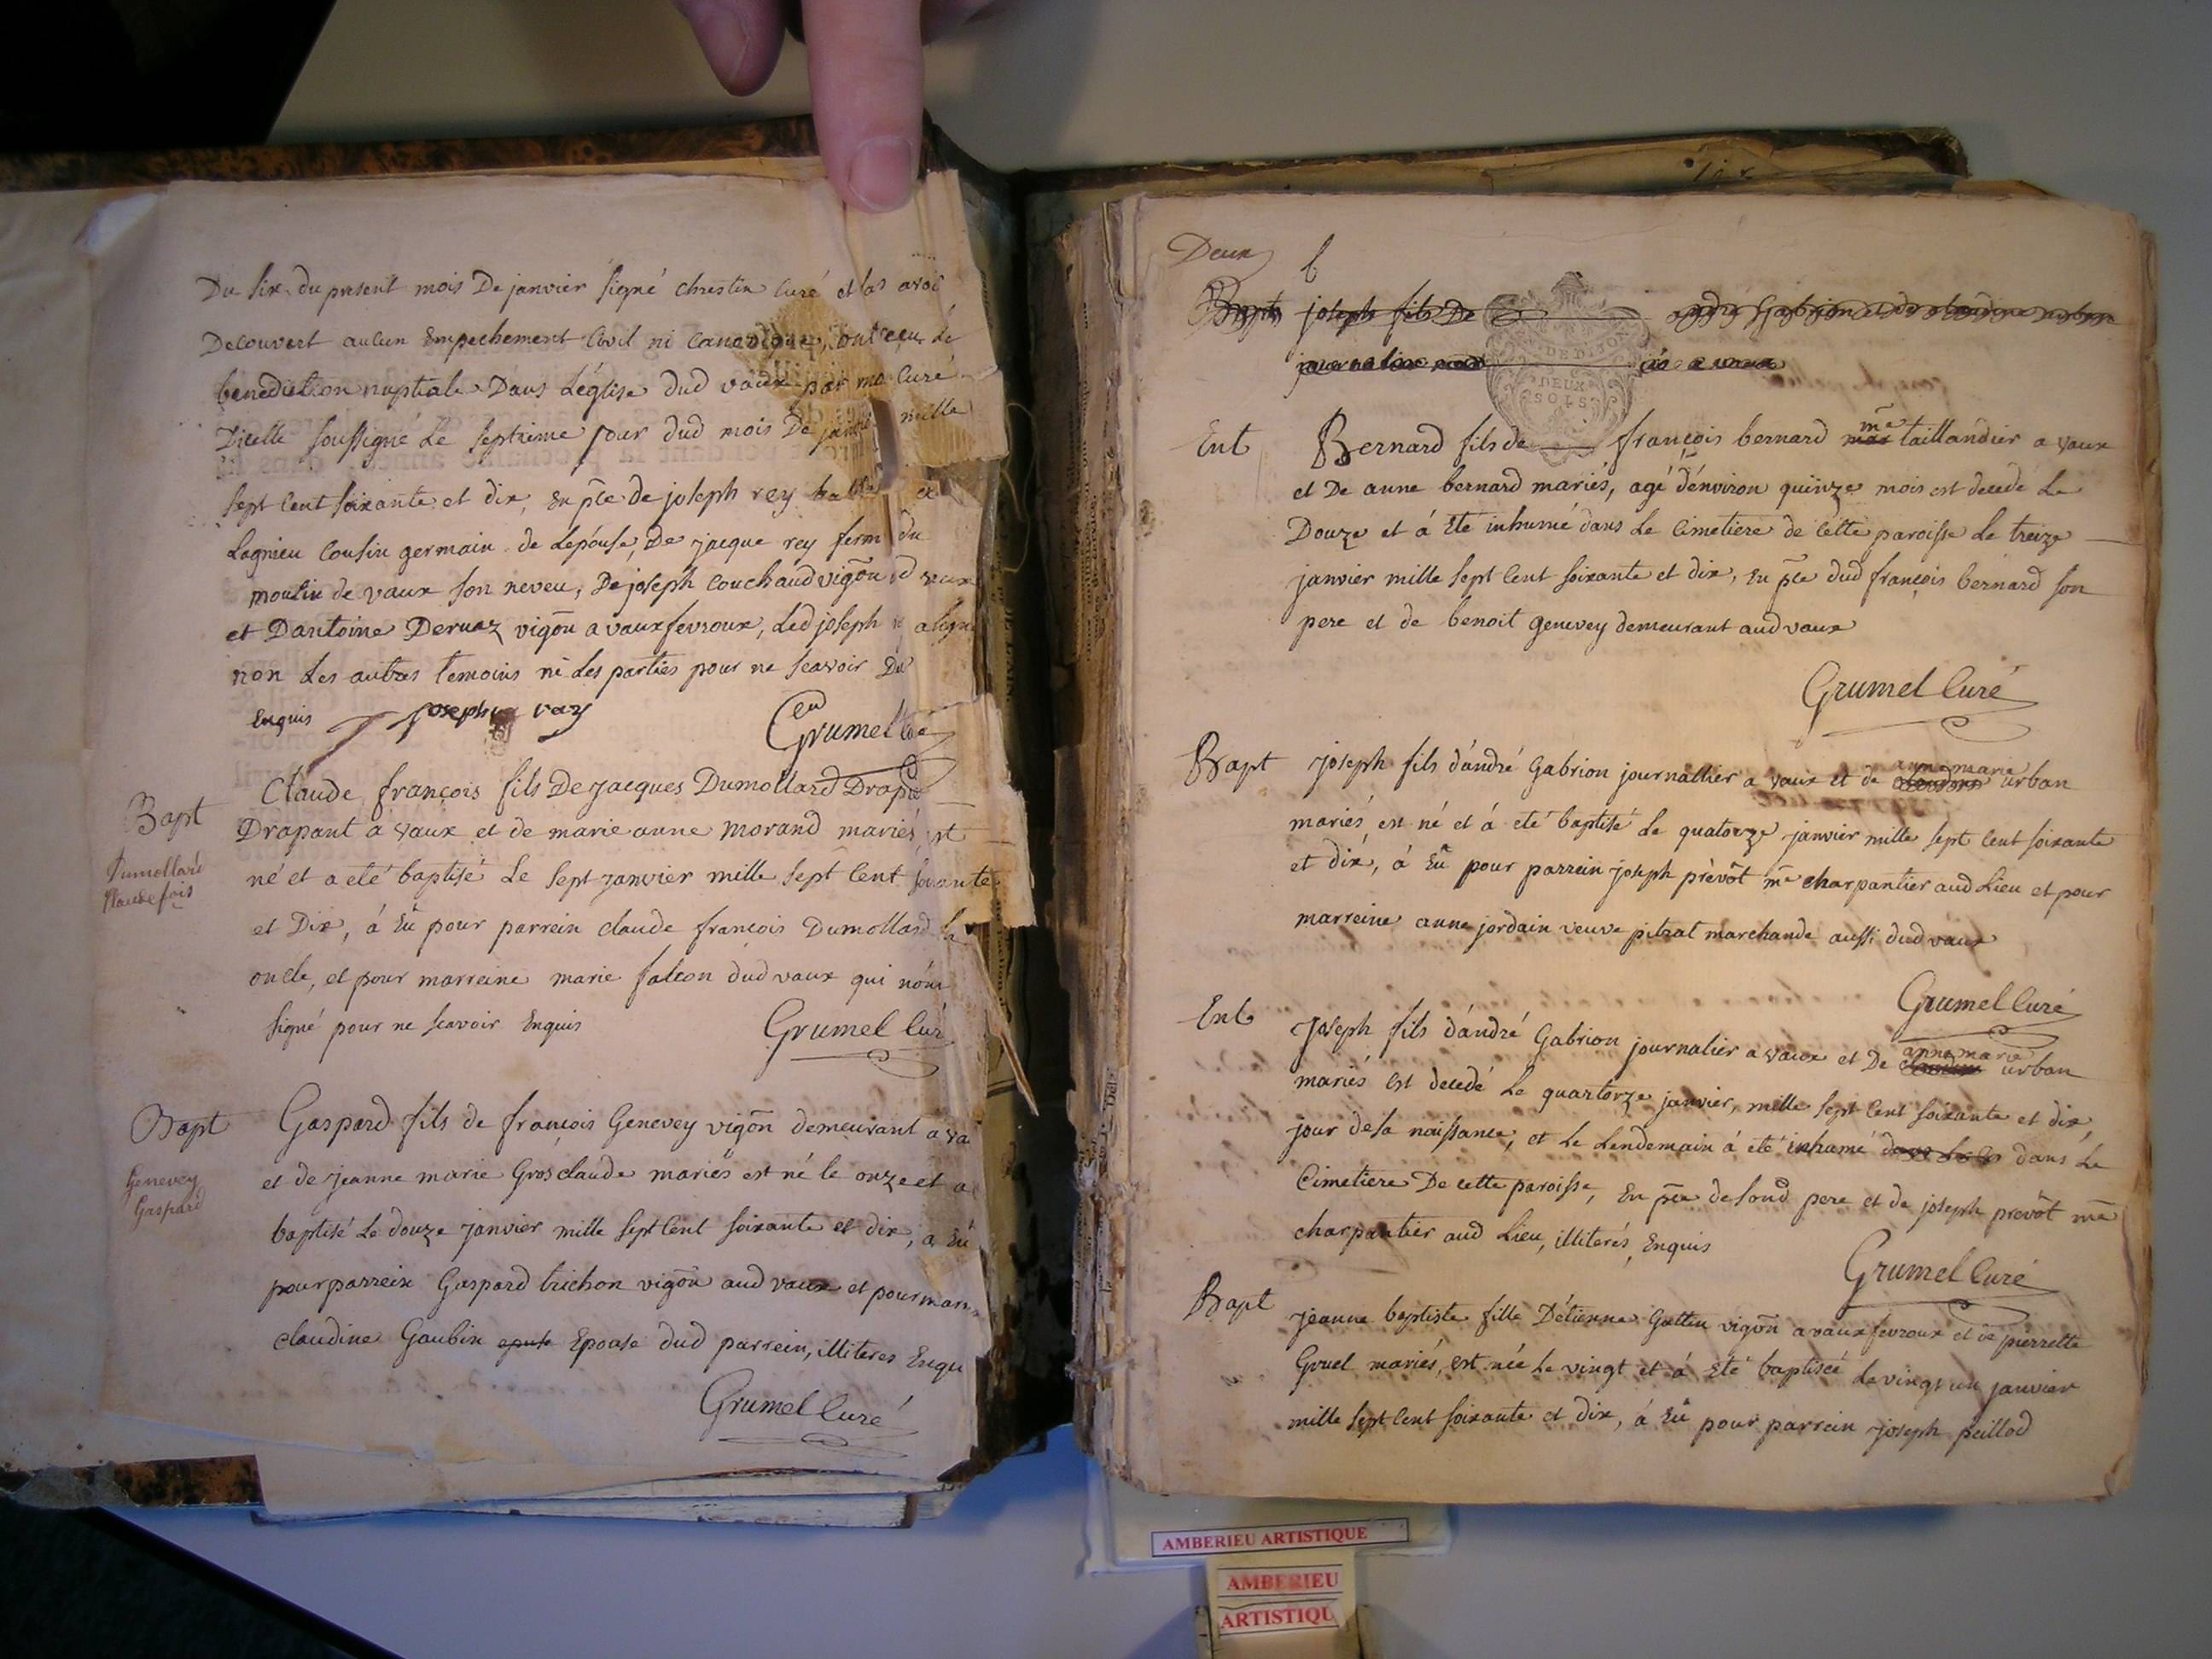 Du six du present mois De janvier signé chrestin curé et las avoir
Decouvert aucun Empechement Civil ni canonique, ont reçu La
benediction nuptiale Dans L'église dud vaux par moi Curé
Dicelle soussigné Le septieme jour dud mois De janvier mille
sept Cent soixante et dix, En pce de joseph rey
Lagnieu Cousin germain de Lepouse, De jacque rey ferm du
moulin de vaux son neveu, De joseph Couchaud vigon d vaux
et D'antoine Dervaz vigon a vauxfevroux, Led joseph a signé
non Les autres temoins ni Les parties pour ne sçavoir De
Enquis joseph ray Grumel Curé
Bapt Claude françois fils De Jacques Dumollard Drapie
Drapant a vaux et de marie anne morand mariés, est
Dumollard né et a eté baptisé Le sept janvier mille sept Cent soixante
Claude fois
et Dix, á Eû pour parrein claude françois Dumollard
oncle, et pour marreine marie falcon dud vaux qui nont
signé pour ne scavoir Enquis Grumel Curé
Bapt Gaspard fils de françois Genevey vigon demeurant a va
et de jeanne marie Grosclaude mariés est né le onze et a
Genevey
Gaspard
baptisé Le douze janvier mille sept Cent soixante et dix, a Eû
pour parrein Gaspard trichon vigon aud vaux et pour marr
claudine Gaubin epuse Epouse dud parrein, illiteres Enqu
Grumel Curé
Deux
Bapt joseph fils De andré Gabrion et de claudine urban
Ent Bernard fils de françois bernard me taillandier a vaux
et De anne bernard mariés, agé d'énviron quinze mois est decedé Le
Douze et á Eté inhumé dans Le Cimetiere de Cette paroisse Le treize
janvier mille sept Cent soixante et dix, En pce dud françois bernard son
pere et de benoit genevey demeurant aud vaux
Grumel Curé
Bapt joseph fils d'ándré Gabrion journallier a vaux et de anne marie urban
mariés, est né et á eté baptisé Le quatorze janvier mille sept Cent soixante
et dix, á Eû pour parrein joseph prévôt me charpantier aud Lieu et pour
marreine anne jordain veuve pitrat marchande aussi dud vaux
Grumel Curé
Ent Joseph fils d'ándré Gabrion journalier a vaux et De anne marie urban
mariés est decedé Le quartorze janvier, mille sept Cent soixante et dix,
jour de sa naissance, et Le Lendemain á eté inhumé dans Le
Cimetiere De cette paroisse, En pce de sond pere et de joseph prevôt me
charpantier aud Lieu, illiterés, Enquis
Grumel Curé
Bapt Jeanne baptiste fille D'étienne Gattin vigon a vauxfevroux et de pierrette
Gruel mariés, est née Le vingt et á Eté baptiseé Le vingt un janvier
mille sept Cent soixante et dix, á Eû pour parrein joseph peillod
DEUX
SOLS
AMBERIEU ARTISTIQUE
AMBERIEU
ARTISTIQU